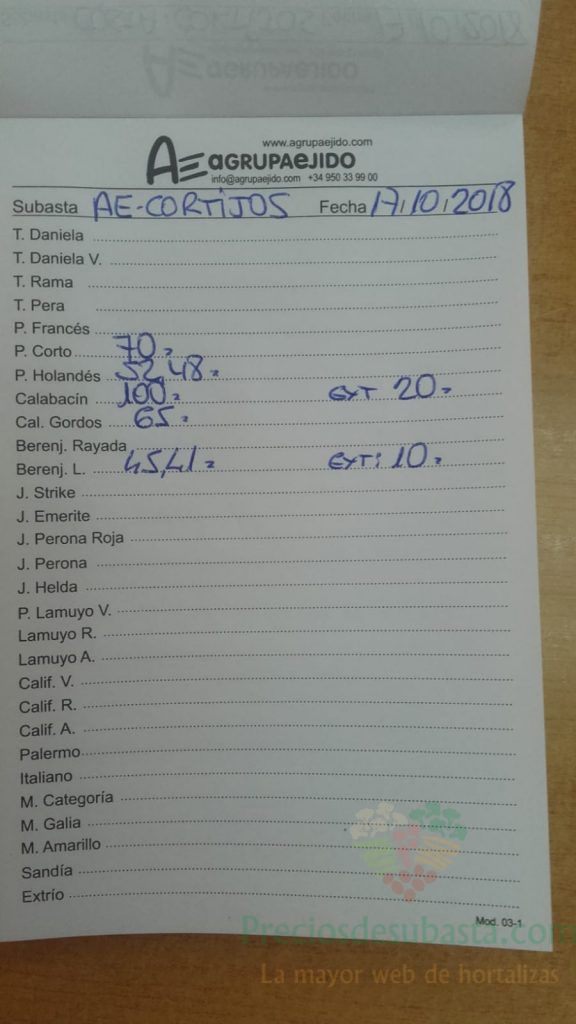 www.agrupaejido.com
AE AGRUPAEJIDO
info@agrupaejido.com +34 950 33 99 00
Subasta AE-CORTIJOS Fecha 17/10/2018
T. Daniela
T. Daniela V.
T. Rama
T. Pera
P. Francés
P. Corto 70
P. Holandés 52,48
Calabacín 100 EXT 20
Cal. Gordos 65
Berenj. Rayada
Berenj. L. 45,41 EXT: 10
J. Strike
J. Emerite
J. Perona Roja
J. Perona
J. Helda
P. Lamuyo V.
Lamuyo R.
Lamuyo A.
Calif. V.
Calif. R.
Calif. A.
Palermo
Italiano
M. Categoría
M. Galia
M. Amarillo
Sandía
Extrío
Mod. 03-1
Preciosdesubasta.com
La mayor web de hortalizas